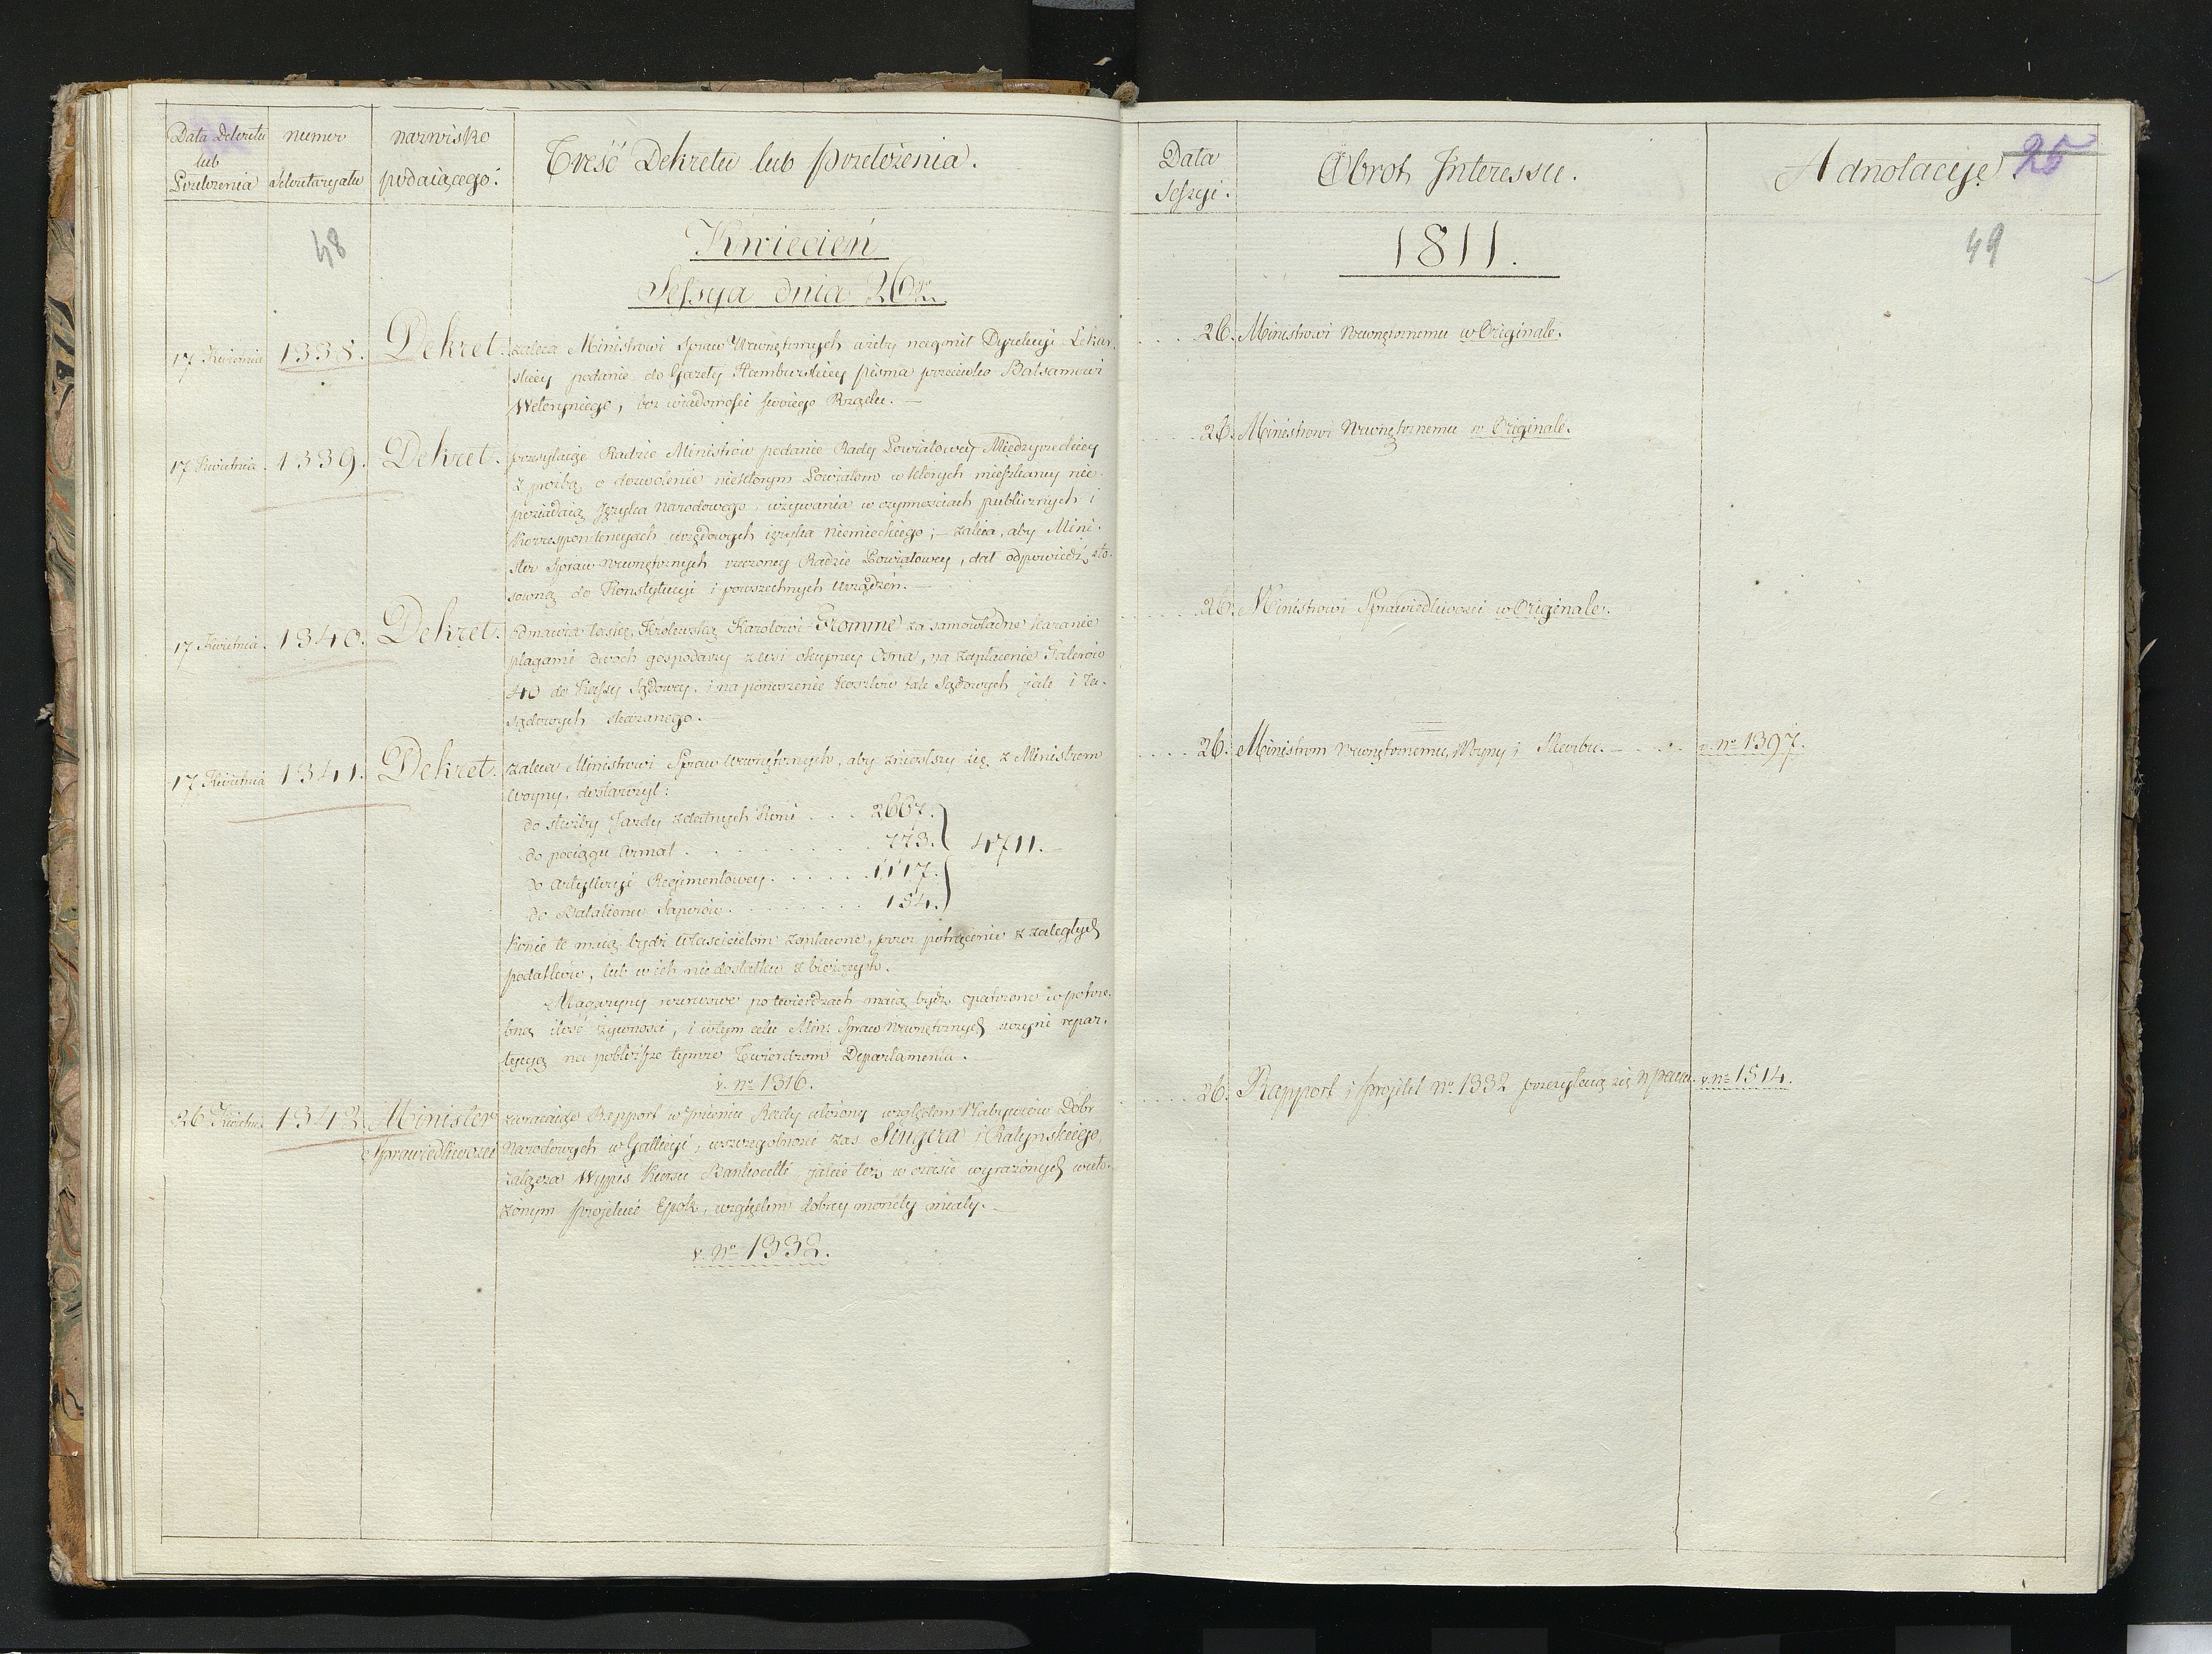 Data Dekretu
lub
Przełożenia
numer
Sekretaryatu
nazwisko
podaiącego.
Treść Dekretu lub przełożenia.
48
Kwiecień
Sessya dnia 26go
17 Kwietnia 1338. Dekret. zaleca Ministrowi Spraw Wewnętrznych ażeby naganił Dyrekcyi Lekar-
skiey podanie do Gazety Hamburskiey pisma przeciwko Balsamowi
, bez wiadomości swoiego Rządu. —
17 Kwietnia. 1339. Dekret. przesyłaiąc Radzie Ministrów podanie Rady Powiatowey Międzyrzeckiey
z prośbą o dozwolenie niektorym Powiatom w których mieszkańcy nie
posiadaią Języka Narodowego, używania w czynnościach publicznych i
Korrespondencyach urzędowych ięzyka niemieckiego; — zaleca, aby Mini-
ster Spraw Wewnętrznych rzeczoney Radzie Powiatowey, dał odpowiedź sto-
sowną do Konstytucyi i powszechnych urządzeń. —
17 Kwietnia. 1340. Dekret. odmawia łaskę Krolewską Karolowi Fromme za samowładne karanie
plagami dwoch gospodarzy z wsi okupney Osna, na zapłacenie Talerów
40 do Kassy Sądowey, i na ponoszenie kosztów tak Sądowych jak i Za-
sądowych skazanego. —
17 Kwietnia 1341. Dekret. zaleca Ministrowi Spraw Wewnętrznych, aby zniosłszy się z Ministrem
Woyny, dostarczył:
do służby Jazdy zdatnych Koni . . . 2667.
do pociągu Armat . . . . . . . . . 773. 4711. —
do Artylleryi Regimentowey . . . . . . 1117.
do Batalionu Saperów . . . . . . . . 154.
Konie te maią bydź Właścicielom zapłacone, przez potrącenie z zaległych
podatków, lub w ich niedostatku z bieżących.
Magazyny rezerwowe po twierdzach maią bydź opatrzone w potrze-
bną ilość żywności, i w tym celu Min: Spraw Wewnętrznych uczyni repar-
tycyą na pobliższe tymże Twierdzom Departamenta. —
v. no 1316.
26 Kwietn. 1342. Minister
Sprawiedliwości
zwracaiąc Rapport w Imieniu Rady ułożony względem Nabywców Dobr
Narodowych w Gallicyi, w szczegolności zaś Singera i Ratynskiego,
załącza Wypis Kursu Bankocetli jakie też w czasie wyrażonych w uło-
żonym projekcie Epok, względem dobrey monety miały. —
v. No 1332.
Data
Sessyi.
Obrot Interessu.
Adnotacije.
25
1811.
49
. . . 26. Ministrowi Wewnętrznemu w Originale.
. . . . . 26. Ministrowi Wewnętrznemu w Originale.
. . . . . 26. Ministrowi Sprawiedliwości w Originale.
. . . . 26. Ministrom Wewnętrznemu, Woyny i Skarbu. — . . . v. no 1397.
. . . . . 26. Rapport i projekt No. 1332 przesyłaią się NPanu. v. no 1514.